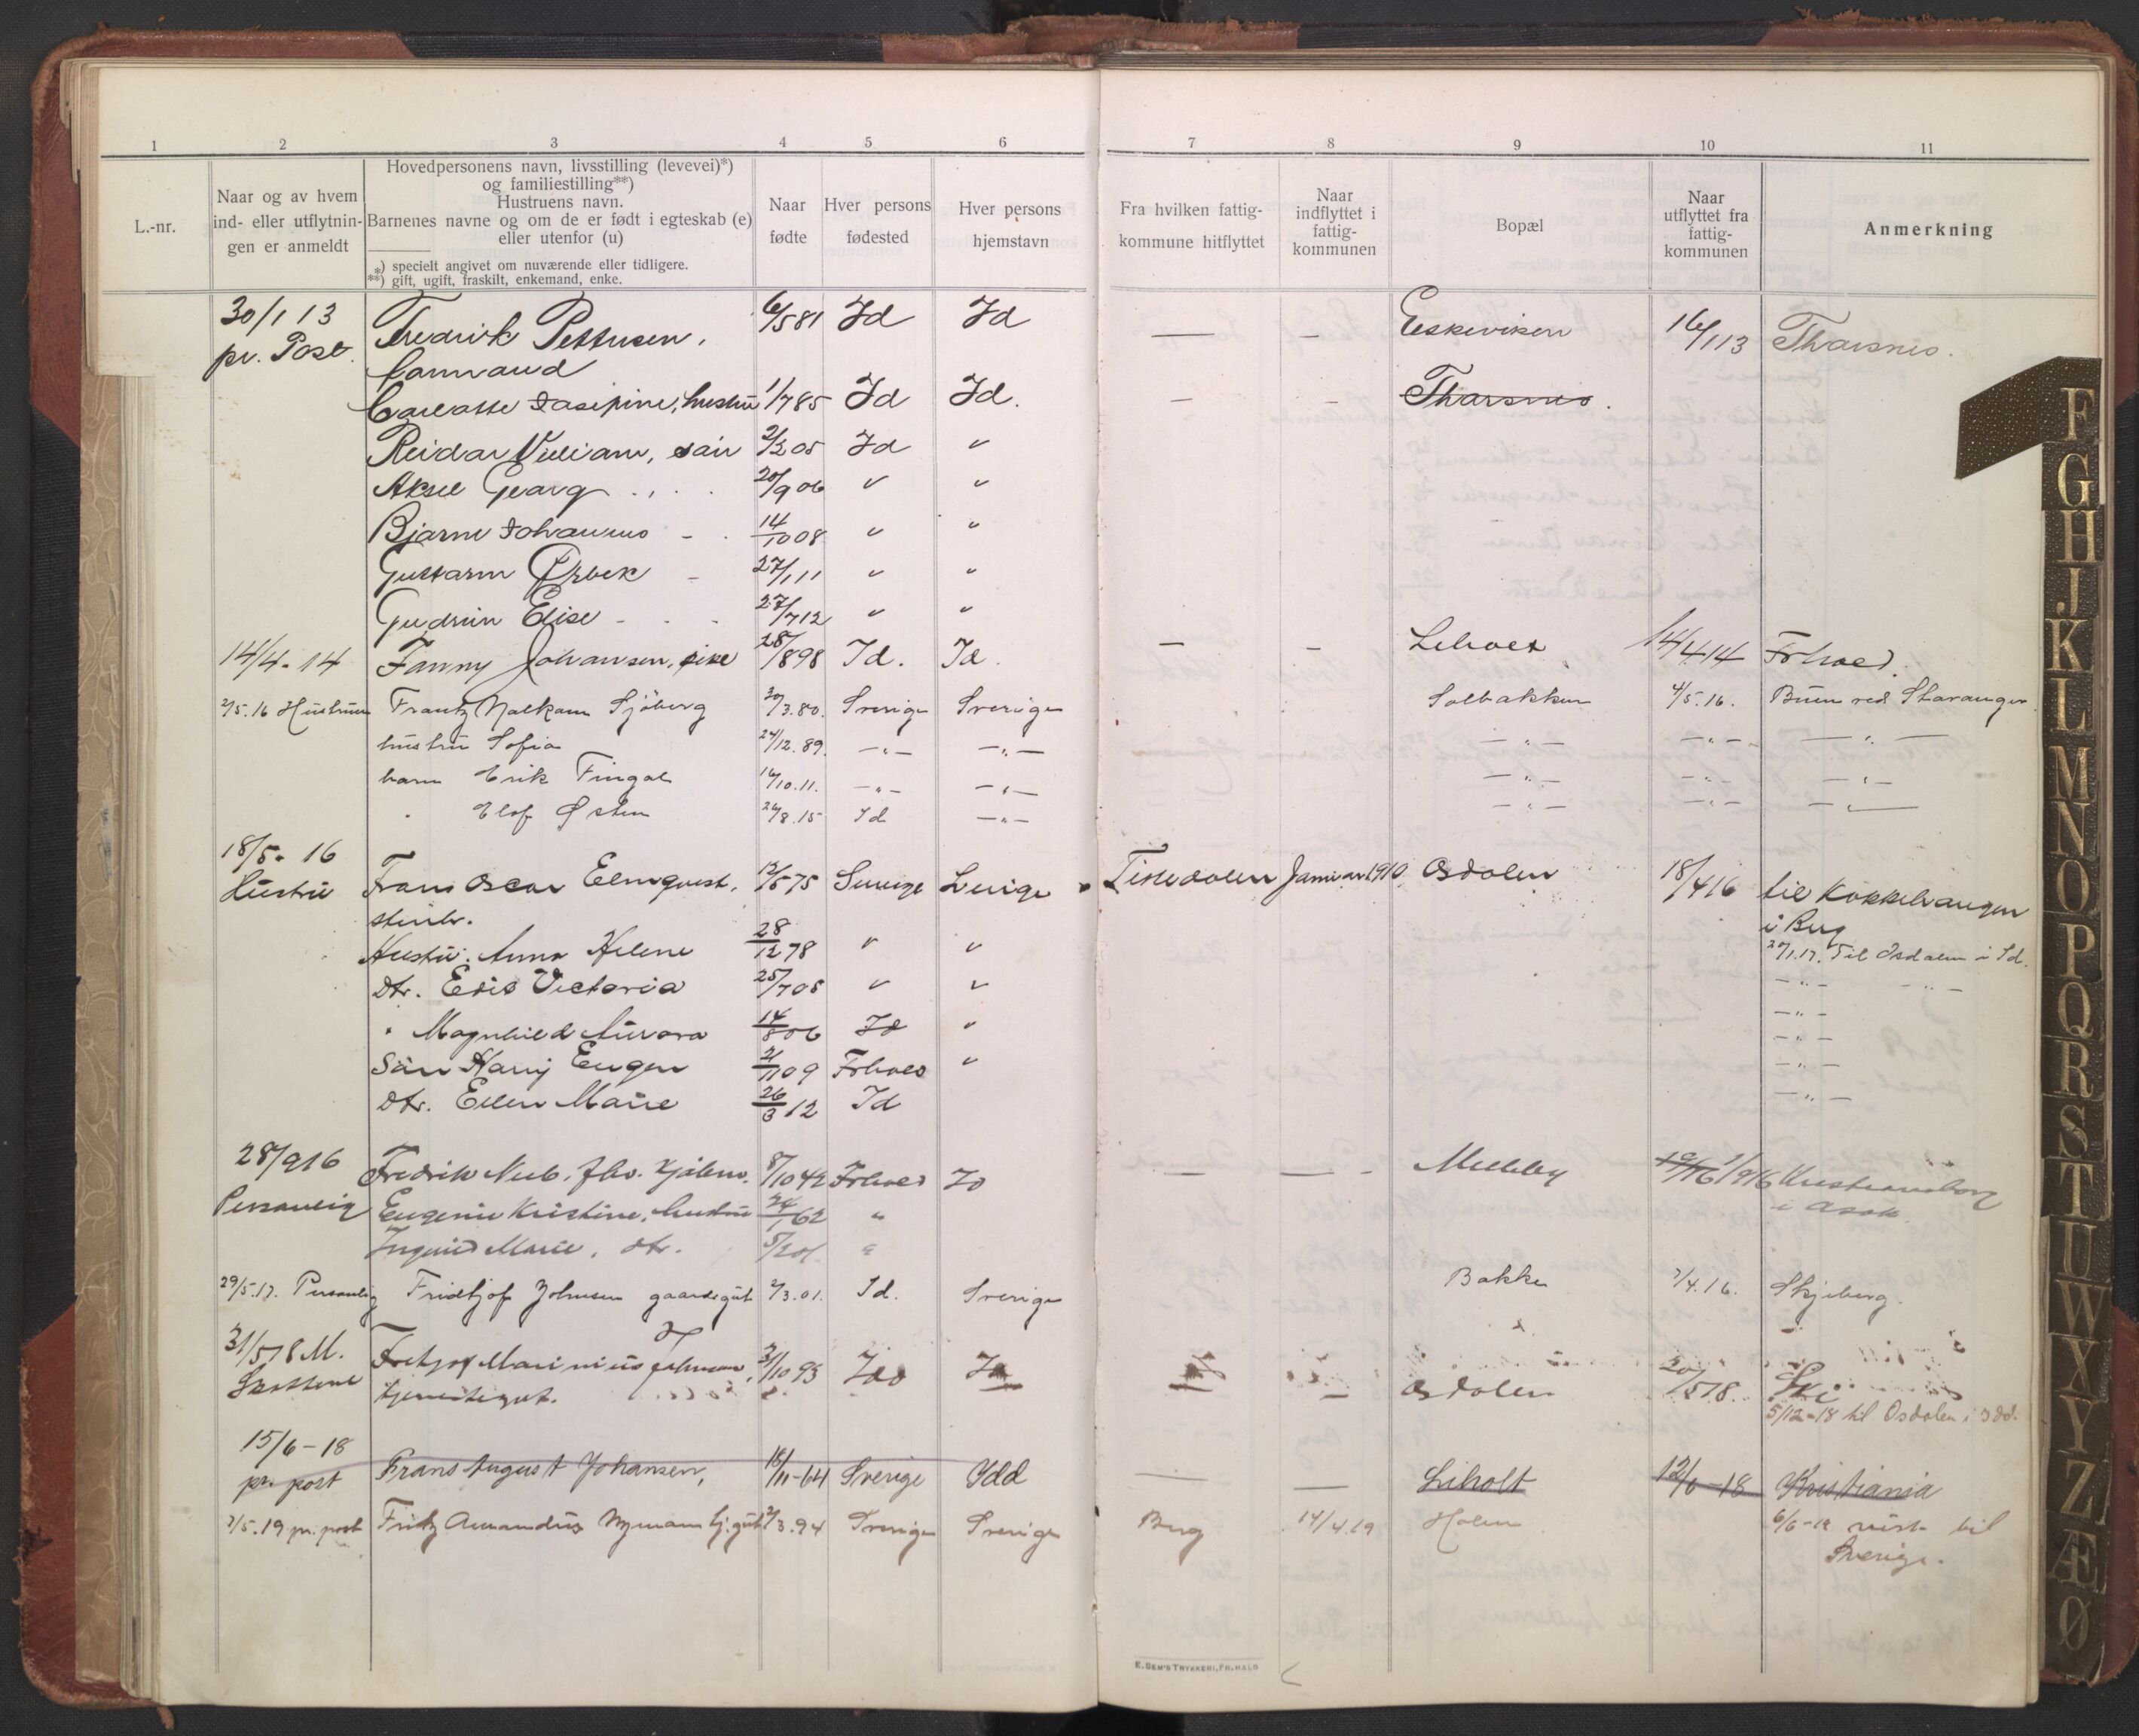 1 2 3 4 5 6 7 8 9 10 11
L.-nr.
Naar og av hvem
ind- eller utflytnin-
gen er anmeldt
Hovedpersonens navn, livsstilling (levevei)*)
og familiestilling**)
Hustruens navn.
Barnenes navne og om de er født i egteskab (e)
eller utenfor (u)
*) specielt angivet om nuværende eller tidligere.
**) gift, ugift, fraskilt, enkemand, enke.
Naar
fødte
Hver persons
fødested
Hver persons
hjemstavn
Fra hvilken fattig-
kommune hitflyttet
Naar
indflyttet i
fattig-
kommunen
Bopæl
Naar
utflyttet fra
fattig-
kommunen
Anmerkning
30/1 13 Fredrik Pettersen, 6/5 81 Id Id — — Eskeviken 16/1 13 Tharsnes.
pr. Post.
Carlotte Josepine, hustru 1/7 85 Id Id. — — Tharsnes.
Reidar Viliam, søn 2/2 05 Id "
Aksel Georg " 20/9 06 " "
Bjarne Johannes - 14/10 08 " "
Guttorm Ørbek - 27/1 11 " "
Gudrun Elise - 27/7 12 " "
14/4-14 Fanny Johansen, pike 28/8 98 Id. Id. — — Liholt 14/4 14 Frhald.
2/5.16 Hustruen Frantz Malkom Sjöberg 30/3.80. Sverige Sverige Solbakken 4/5.16. Buen ved Stavanger
hustru Sofia 24/12.89. —"— —"— —"— —"— —"—
barn Erik Fingal 16/10.11. —"— —"— —"— —"— —"—
" Elof Østen 26/8.15 Id —"— —"— —"— —"—
18/5-16
Hustru Frans Oscar Elmqvist, 12/5 75 Sverige Sverige Tistedalen Januar 1910 Osdalen 18/4 16 til Kokkehaugen
stenh. i Berg
Hustru: Anna Helene 28/12 78 " " 20/1.17. Til Osdalen i Id.
Dtr. Edis Victoria 25/7 05 " " —"— —"—
" Magnhild Aurora 14/8 06 Id " —"—
Søn Harry Eugen 2/11 09 Frhald " —"—
Dtr. Ellen Marie 26/3 12 Id —"—
28/9 16 Fredrik Neeb, fhv. 8/10 42 Frhald Id — — Melleby 1/9 16 Kristiansborg
Personlig Eugenie Kristine, hustru 24/1 62 " i Asak.
Ingrid Marie, dtr. "
29/5.17. Personlig Fridtjof Johnsen gaardsgut 2/3.01. Id. Sverige Bakke 2/4.16. Skjeberg.
31/5 18 M. Fritjof Marinius Johnsen, 31/10 93 Idd Id — Osdalen 20/5 18. Ski
tjenestegut. 5/12-18 til Osdalen i Idd.
15/6-18
pr. post Frans August Johansen, 18/11-64 Sverige Idd — — Liholt 12/6-18 Kristiania
2/5.19 pr. post Fritz Amandus Nyman tj.gut 2/3.94 Sverige Sverige Berg 14/4.19 Holen reist til
Sverige.
E. SEM'S TRYKKERI, FR.HALD
F
G
H
J
K
L
M
N
O
P
Q
R
S
T
U
W
X
Y
Z
Æ
Ø